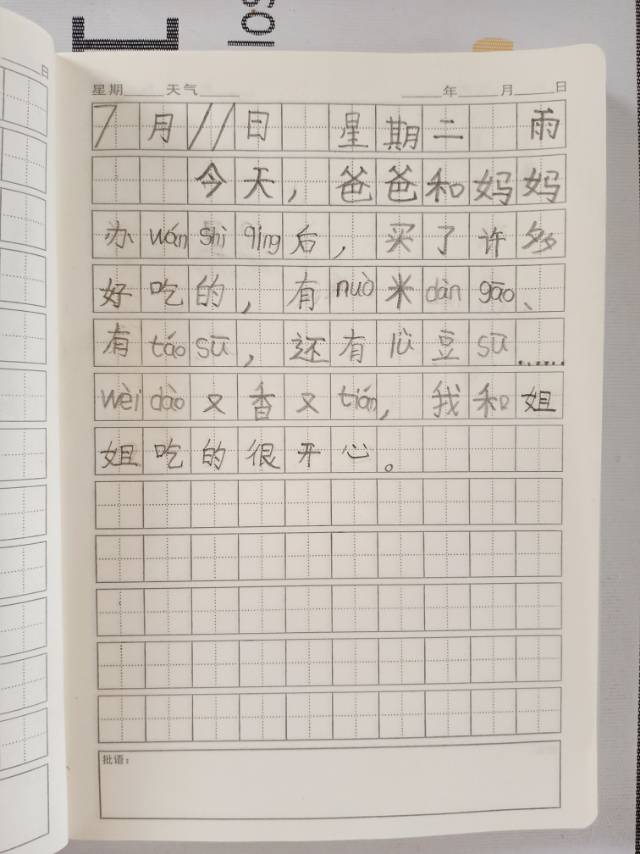 los
日
星期 天气 年 月 日
7月11日 星期二 雨
今天，爸爸和妈妈
办wán shì qing后，买了许多
好吃的，有nuò米dàn gāo、
有táo sū，还有lǜ豆sū……
wèi dào又香又tián，我和姐
姐吃的很开心。
批语：